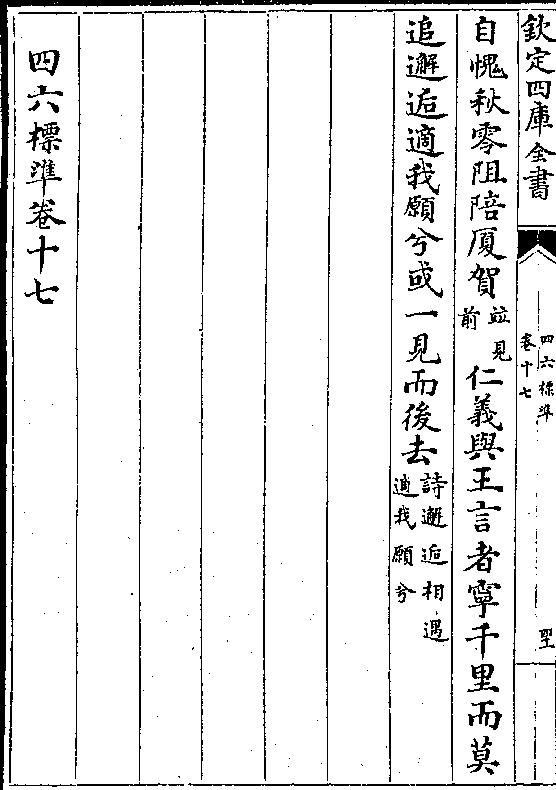 欽定四庫全書
四六標準
卷十七
自愧秋零阻陪厦賀
竝見
前
仁義與王言者寧千里而莫
追邂逅適我願兮或一見而後去
詩邂逅相遇
適我願兮
四六標準卷十七